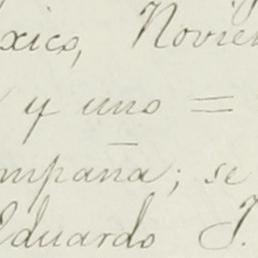 xico, Novie
y uno =
mpaña; se
Eduardo J.